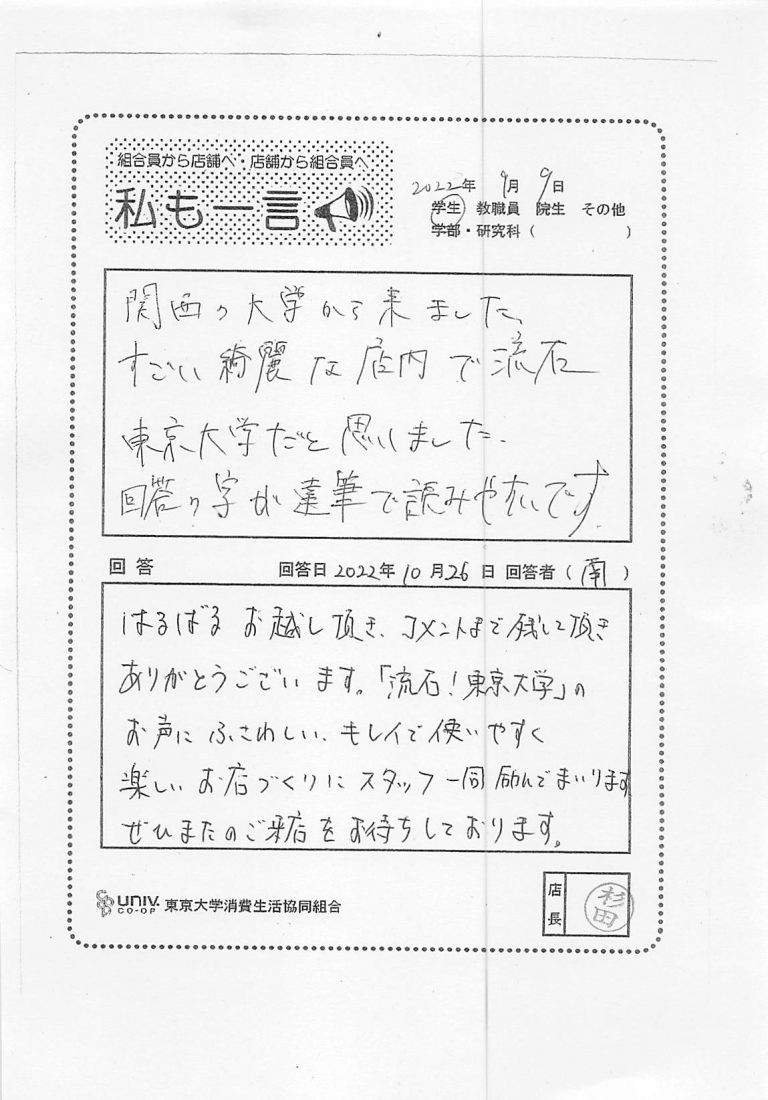 組合員から店舗へ・店舗から組合員へ
私も一言
2022年 9月 9日
学生 教職員 院生 その他
学部・研究科（ ）
関西の大学から来ました、
すごい綺麗な店内で流石
東京大学だと思いました.
回答の字が達筆で読みやすいです.
回答 回答日 2022年 10月 26日 回答者（南）
はるばるお越し頂き、コメントまで残して頂き
ありがとうございます。「流石！東京大学」の
お声にふさわしい、キレイで使いやすく
楽しいお店づくりにスタッフ一同励んでまいります
ぜひまたのご来店をお待ちしております。
UNIV. CO-OP 東京大学消費生活協同組合
店長
杉田